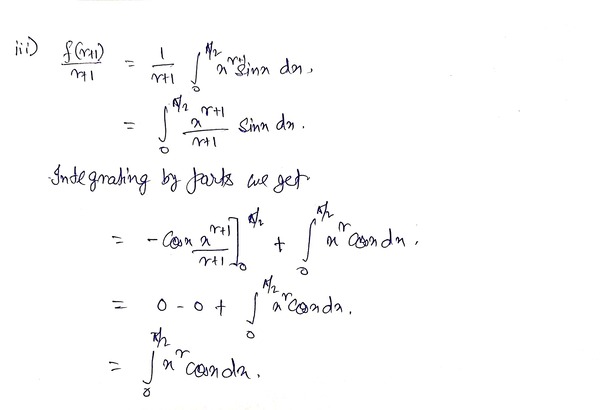 iii) f(r+1)/r+1 = 1/r+1 ∫₀^π/2 x^r+1 sinx dx.
= ∫₀^π/2 x^r+1/r+1 sinx dx.
Integrating by parts we get
= -cosx x^r+1/r+1]₀^π/2 + ∫₀^π/2 x^r cosx dx.
= 0 - 0 + ∫₀^π/2 x^r cosx dx.
= ∫₀^π/2 x^r cosx dx.